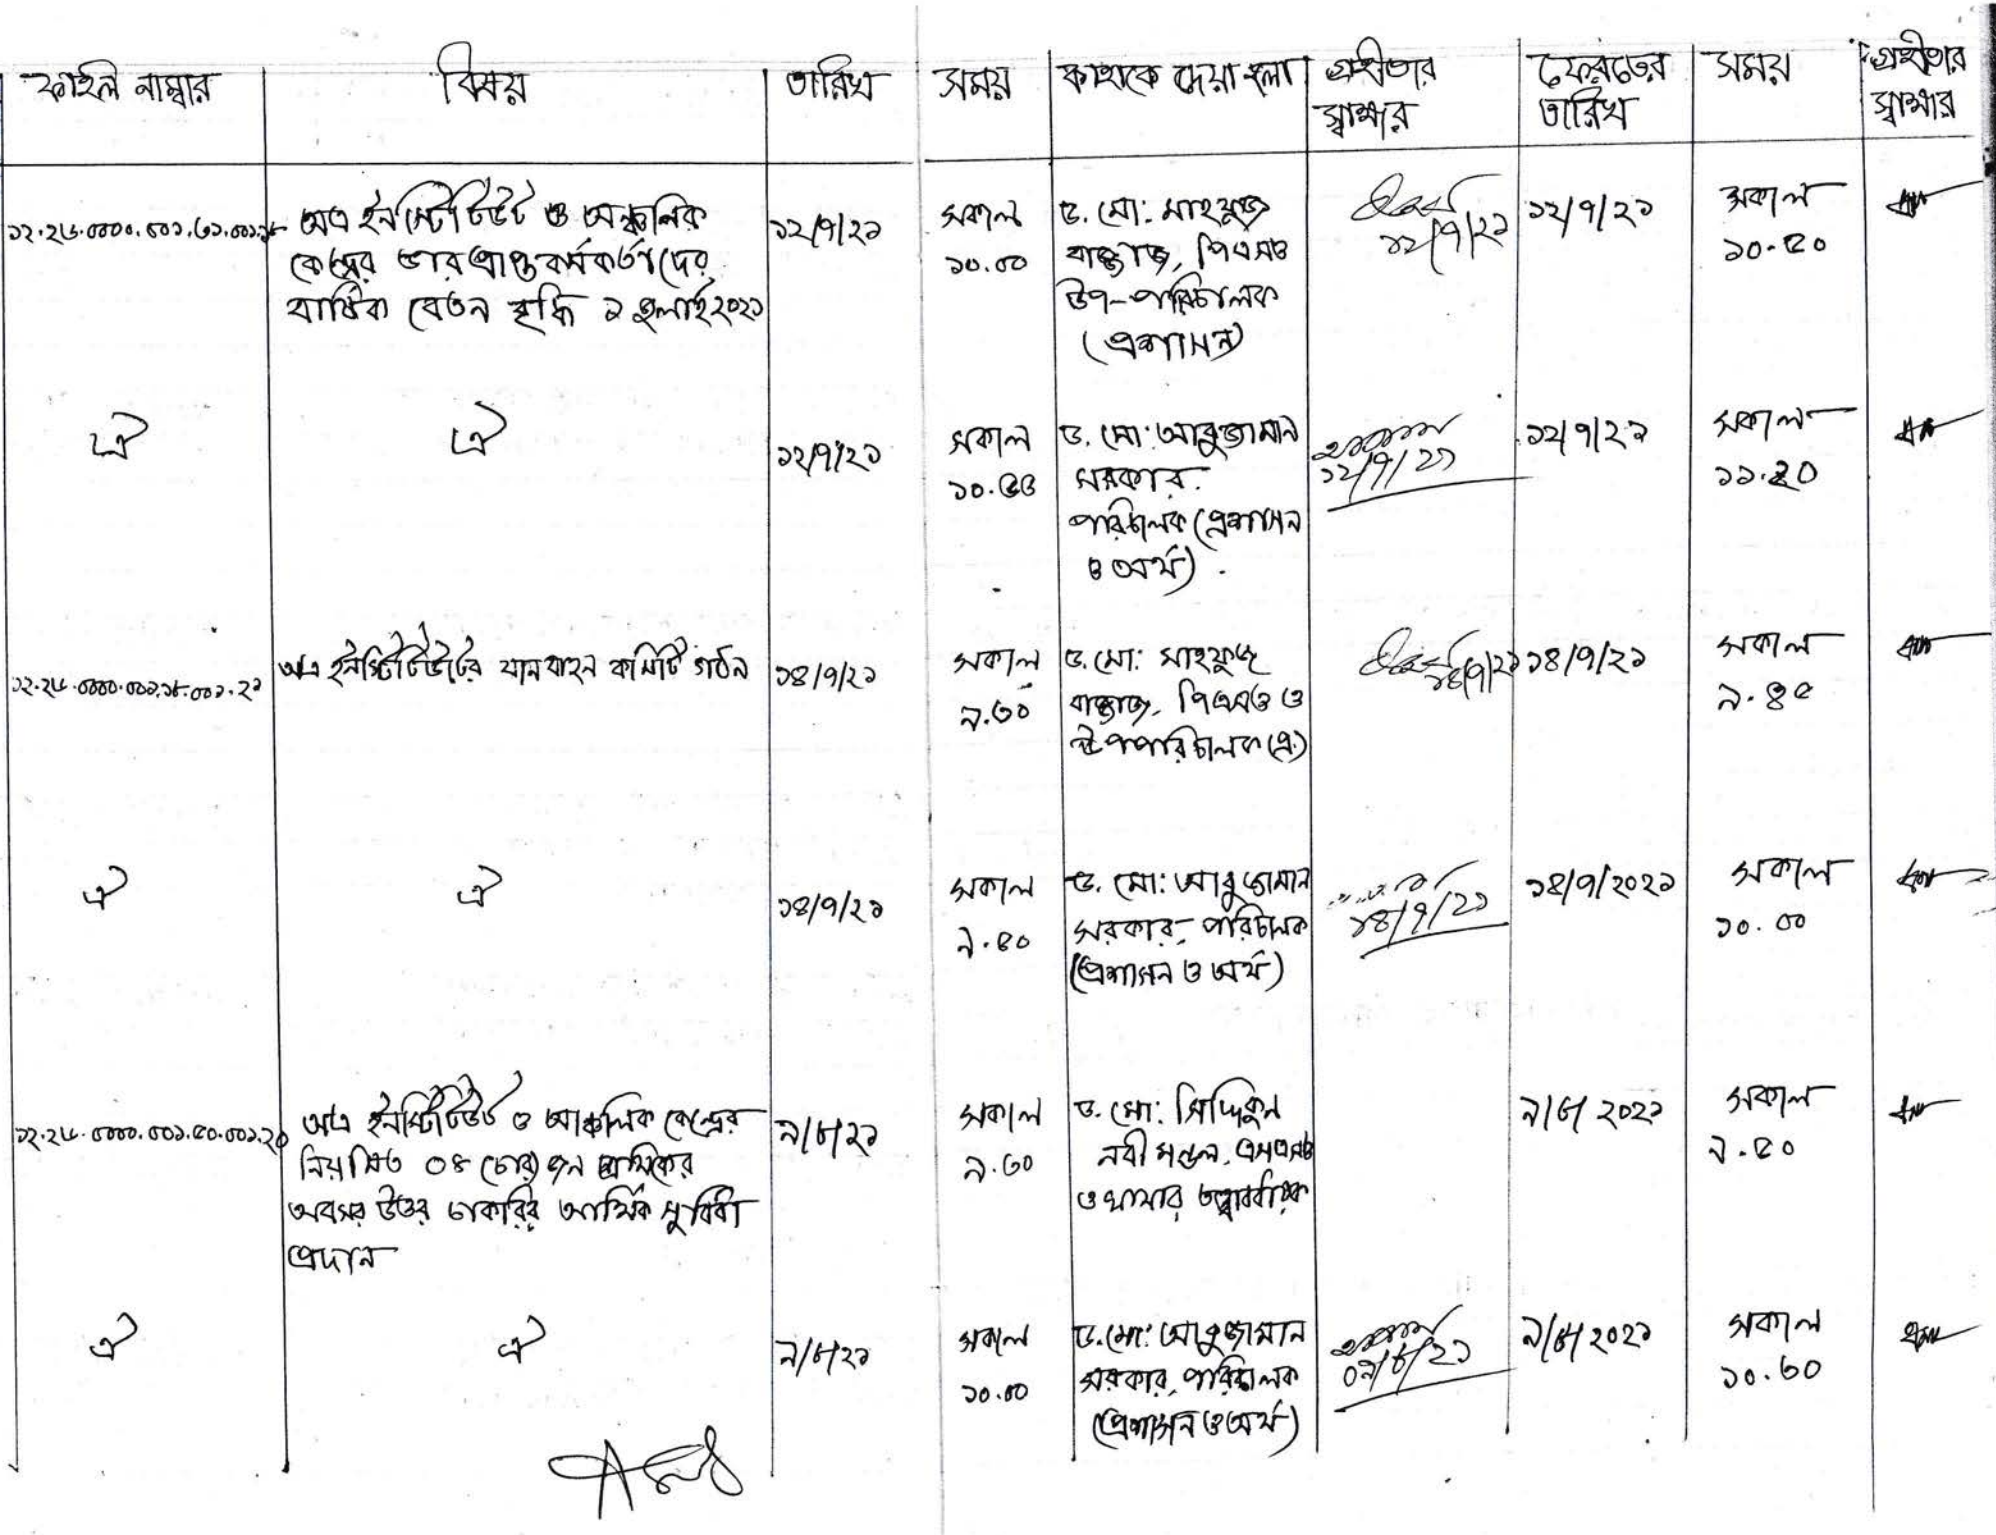 ফাইল নাম্বার
বিষয়
তারিখ
সময়
কাহাকে দেয়া হলো
গ্রহীতার
স্বাক্ষর
ফেরতের
তারিখ
সময়
গ্রহীতার
স্বাক্ষর
অত্র ইনস্টিটিউট ও আঞ্চলিক
কেন্দ্রের ভারপ্রাপ্ত কর্মকর্তাদের
বার্ষিক বেতন বৃদ্ধি ১ জুলাই ২০২১
১২/৭/২১
সকাল
১০.০০
ড. মো: মাহফুজ
বাজ্জাজ, পিএসও
উপ-পরিচালক
(প্রশাসন)
১২/৭/২১
১২/৭/২১
সকাল
১০.৫০
ঐ
ঐ
১২/৭/২১
সকাল
১০.৫৫
ড. মো: আবুজামান
সরকার
পরিচালক (প্রশাসন
ও অর্থ)
১২/৭/২১
১২/৭/২১
সকাল
১১.২০
১২.২৬.০০০০.০০১.১৮.০০১.২১
অত্র ইনস্টিটিউটের যানবাহন কমিটি গঠন
১৪/৭/২১
সকাল
৯.৩০
ড. মো: মাহফুজ
বাজ্জাজ, পিএসও ও
উপপরিচালক (প্র:)
১৪/৭/২১
১৪/৭/২১
সকাল
৯.৪৫
ঐ
ঐ
১৪/৭/২১
সকাল
৯.৫০
ড. মো: আবুজামান
সরকার, পরিচালক
(প্রশাসন ও অর্থ)
১৪/৭/২১
১৪/৭/২০২১
সকাল
১০.০০
১২.২৬.০০০০.০০১.৫০.০০১.২০
অত্র ইনস্টিটিউট ও আঞ্চলিক কেন্দ্রের
নিয়মিত ০৪ (চার) জন শ্রমিকের
অবসর উত্তর চাকরির আর্থিক সুবিধা
প্রদান
৯/৮/২১
সকাল
৯.৩০
ড. মো: সিদ্দিকুন
নবী মন্ডল, এসএসও
ও খামার তত্ত্বাবধায়ক
৯/৮/২০২১
সকাল
৯.৫০
ঐ
ঐ
৯/৮/২১
সকাল
১০.০০
ড. মো: আবুজামান
সরকার, পরিচালক
(প্রশাসন ও অর্থ)
০৯/৮/২১
৯/৮/২০২১
সকাল
১০.৩০